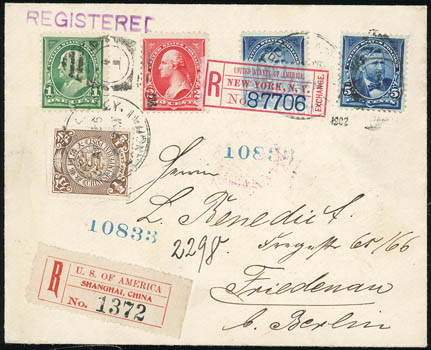 REGISTERED
1 ONE CENT 1
2 TWO CENTS 2
5 5
R
UNITED STATES OF AMERICA
NEW YORK, N.Y.
No 87706
EXCHANGE
1902
10833
10833
Herrn
L. Benedict.
2298.
Friedenau
b. Berlin
R
U. S. OF AMERICA
SHANGHAI, CHINA
No. 1372